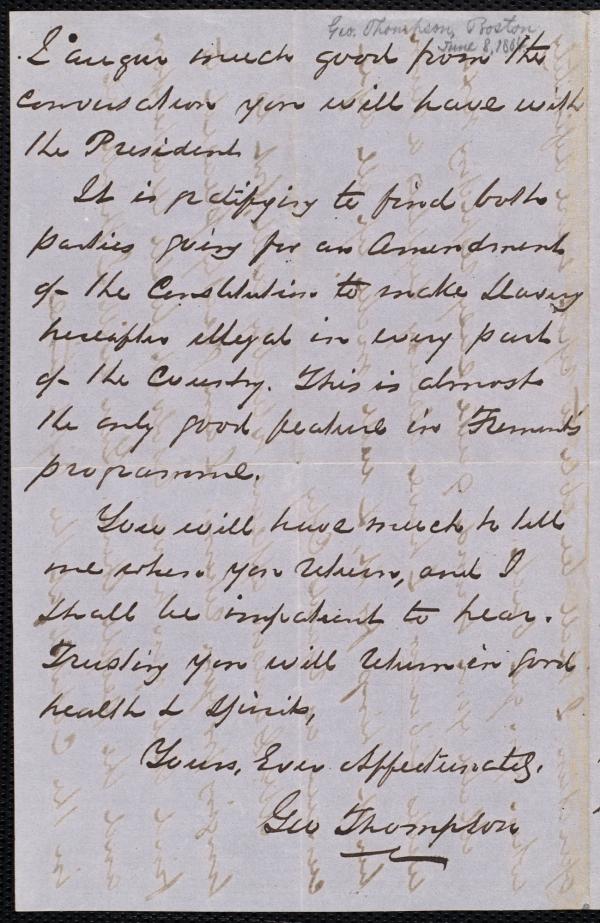 Geo. Thompson, Boston,
June 8, 1864.
I augur much good from the
conversation you will have with
the President
It is gratifying to find both
parties going for an Amendment
of the Constitution to make slavery
hereafter illegal in every part
of the Country. This is almost
the only good feature in Fremont's
programme.
You will have much to tell
me when you return, and I
shall be impatient to hear.
Trusting you will return in good
health & spirits,
Yours, Ever Affectionately,
Geo Thompson